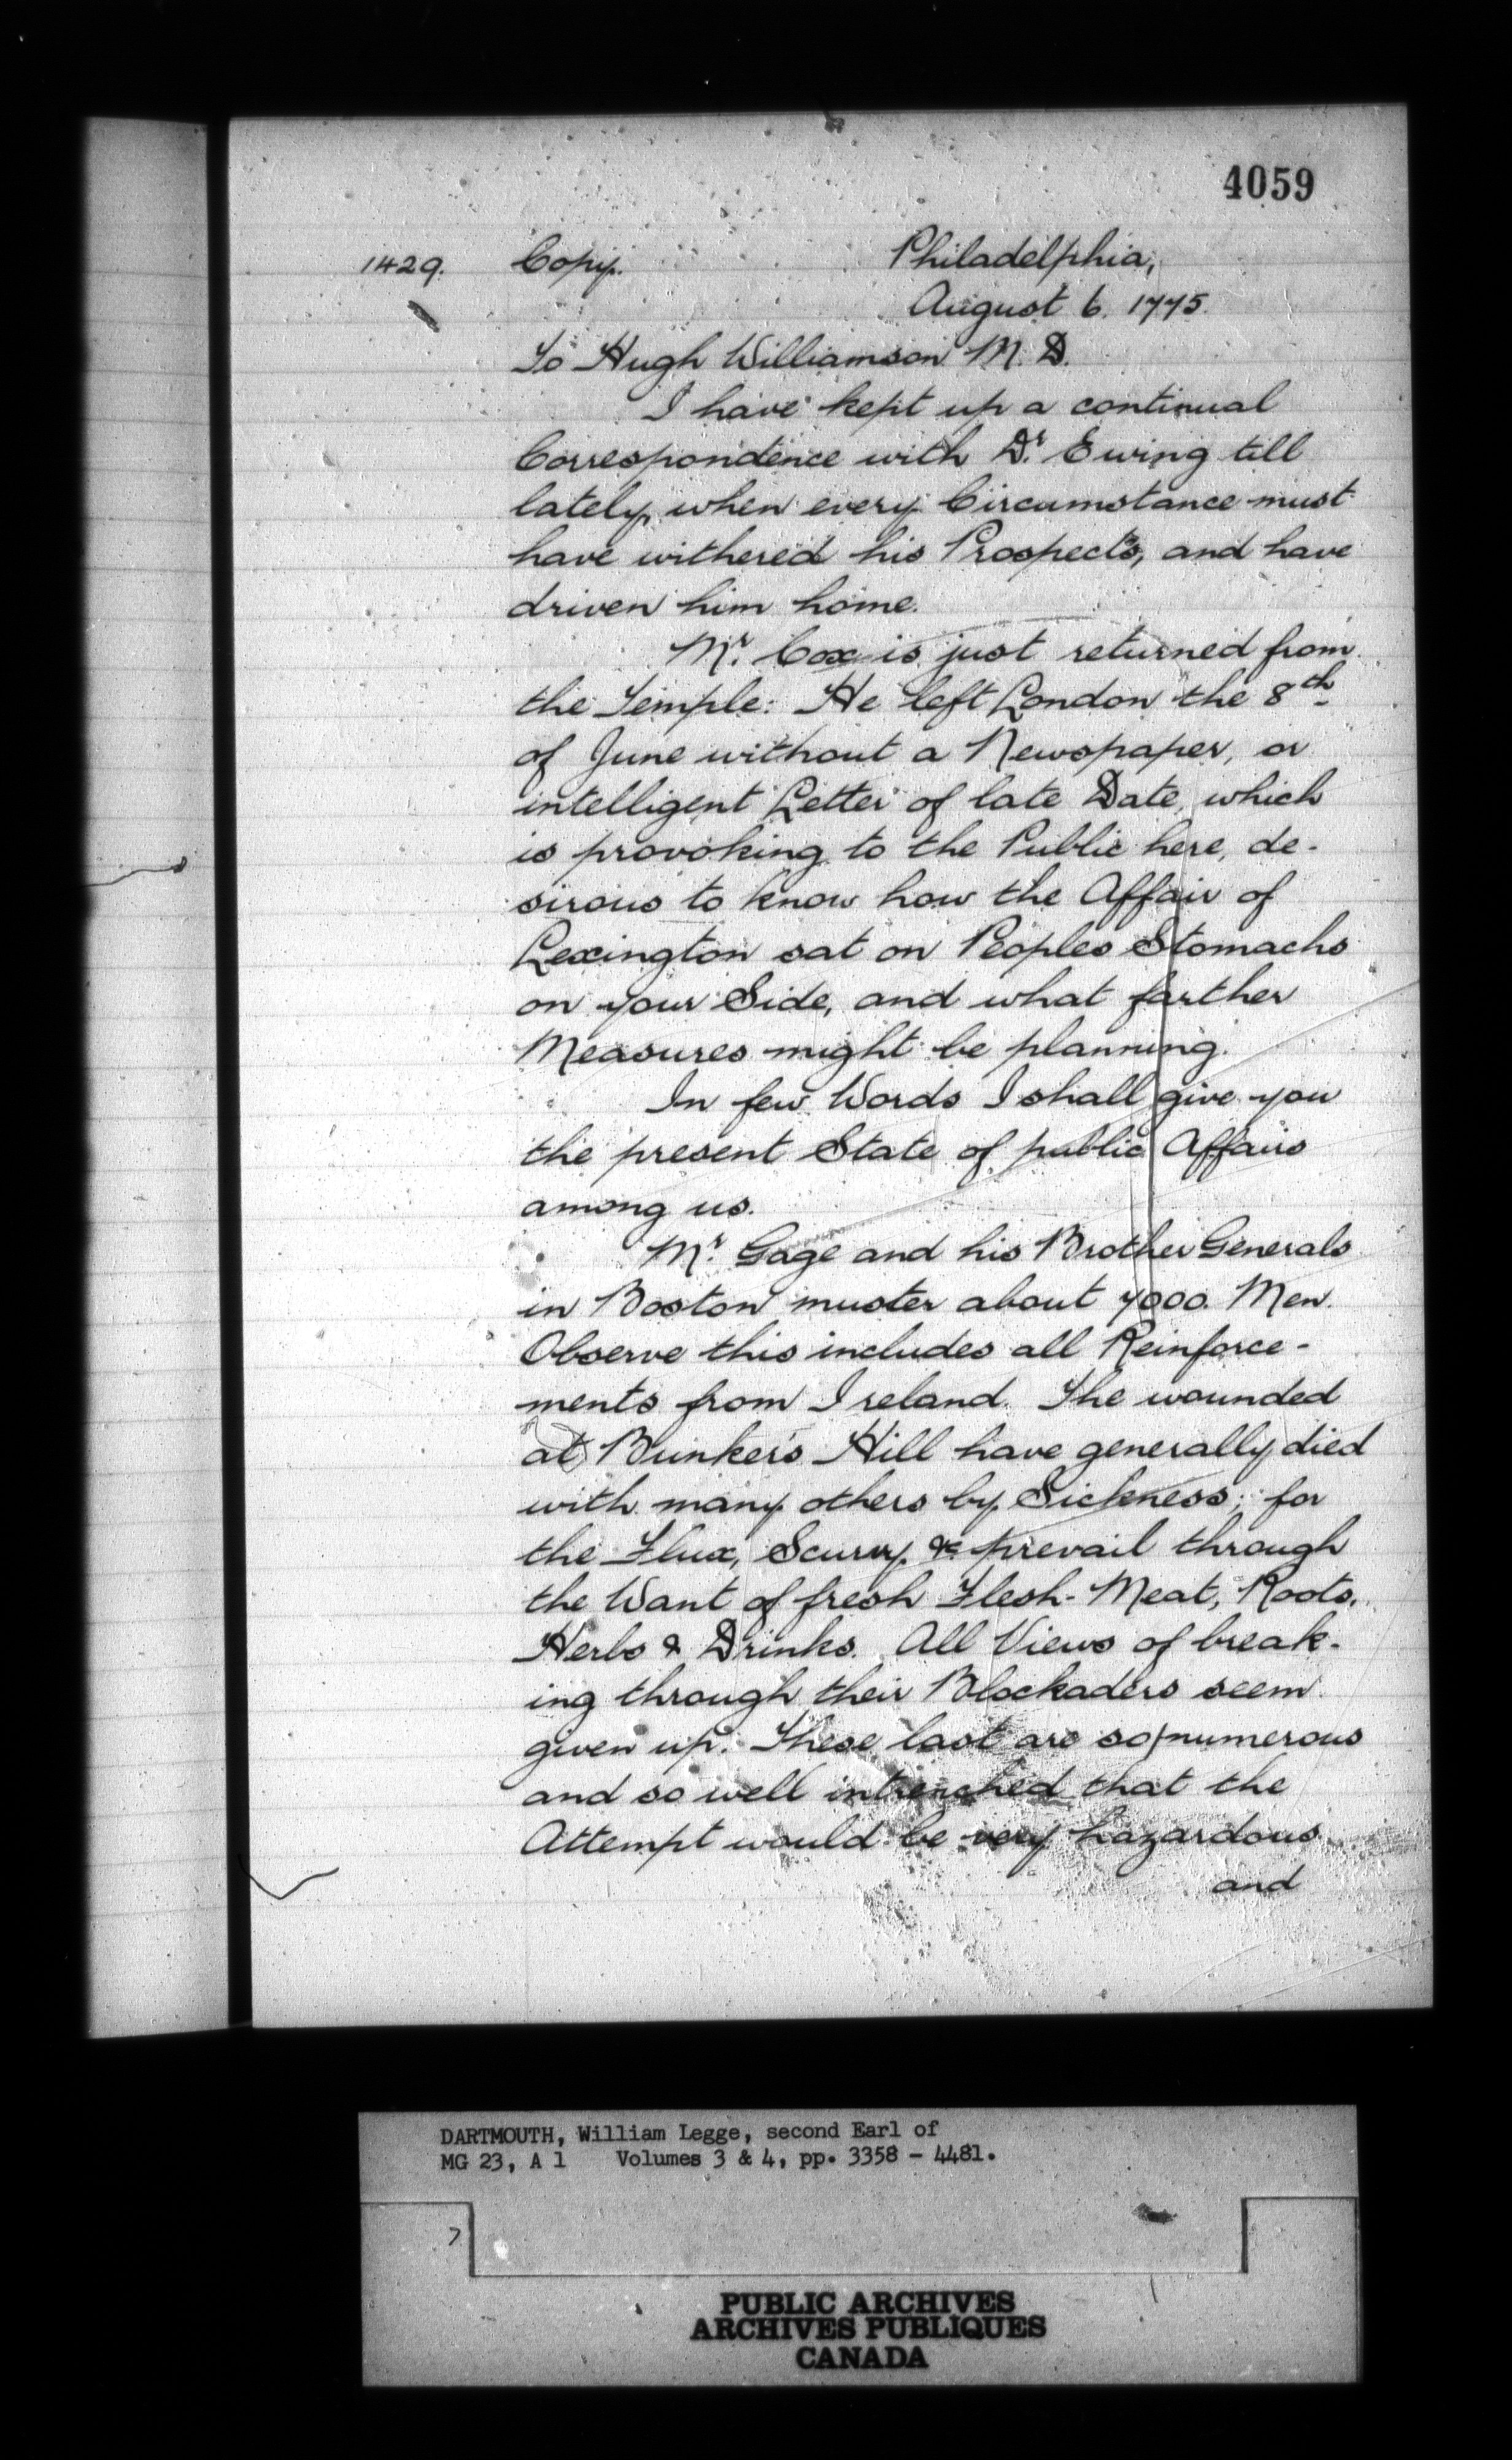 4059
1429. Copy. Philadelphia,
August 6. 1775.
To Hugh Williamson M. D.
I have kept up a continual
Correspondence with Dr. Ewing till
lately, when every Circumstance must
have withered his Prospects, and have
driven him home.
Mr. Cox is just returned from
the Temple: He left London the 8th
of June without a Newspaper, or
intelligent Letter of late Date, which
is provoking to the Public here, de-
sirous to know how the Affair of
Lexington sat on Peoples Stomachs
on your Side, and what farther
Measures might be planning.
In few Words I shall give you
the present State of public Affairs
among us.
Mr. Gage and his Brother Generals
in Boston muster about 7000. Men.
Observe this includes all Reinforce-
ments from Ireland. The wounded
at Bunker's Hill have generally died
with many others by Sickness; for
the Flux, Scurvy, &c. prevail through
the Want of fresh Flesh-Meat, Roots,
Herbs & Drinks. All Views of break-
ing through their Blockaders seem
given up. These last are so numerous
and so well intrenched that the
Attempt would be very hazardous
and
DARTMOUTH, William Legge, second Earl of
MG 23, A 1 Volumes 3 & 4, pp. 3358 - 4481.
7
PUBLIC ARCHIVES
ARCHIVES PUBLIQUES
CANADA